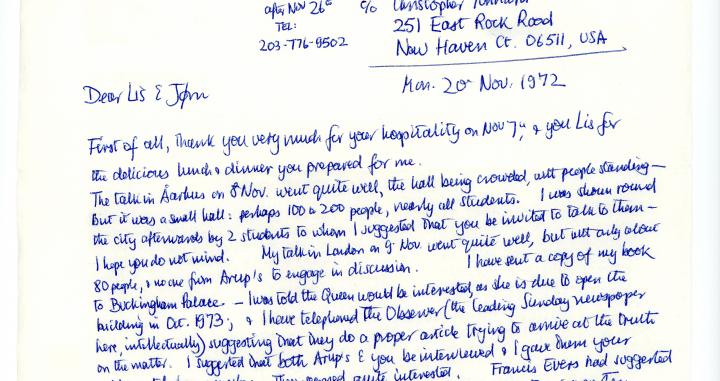 after Nov 26th c/o Christopher
TEL: 251 East Rock Road
203-776-9502 New Haven Ct. 06511, USA
Mon. 20th Nov. 1972
Dear Lis & Jørn
First of all, thank you very much for your hospitality on Nov 7th, & you Lis for
the delicious lunch & dinner you prepared for me.
The talk in Aarhus on 8th Nov. went quite well, the hall being crowded, with people standing —
But it was a small hall: perhaps 100 to 200 people, nearly all students. I was shown round
the city afterwards by 2 students to whom I suggested that you be invited to talk to them —
I hope you do not mind. My talk in London on 9th Nov. went quite well, but with only about
80 people, & no one from Arup's to engage in discussion. I have sent a copy of my book
to Buckingham Palace. — I was told the Queen would be interested, as she is due to open the
building in Oct. 1973; & I have telephoned the Observer (the leading Sunday newspaper
here, intellectually) suggesting that they do a proper article trying to arrive at the truth
on the matter. I suggested that both Arup's & you be interviewed & I gave them your
quite interested. Francis Evers had suggested